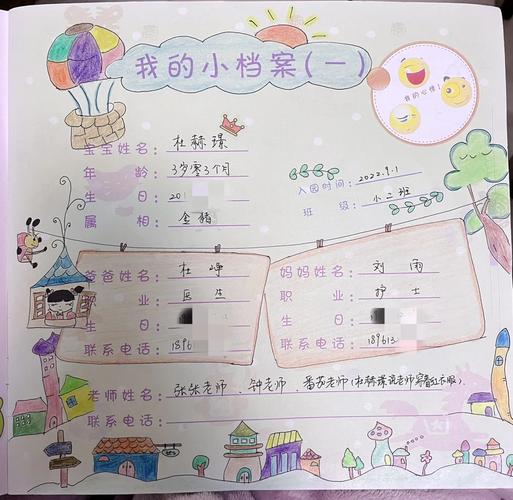 我的小档案(一)
我的心情!
宝宝姓名: 杜赫璟
年 龄: 3岁零3个月
入园时间: 2022.9.1
生 日: 20
班 级: 小二班
属 相: 金猪
爸爸姓名: 杜峥
妈妈姓名: 刘雨
职 业: 医生
职 业: 护士
生 日:
生 日:
联系电话: 1896
联系电话: 189613
老师姓名: 张张老师、钟老师、番茄老师(杜赫璟说老师穿着红衣服).
联系电话: